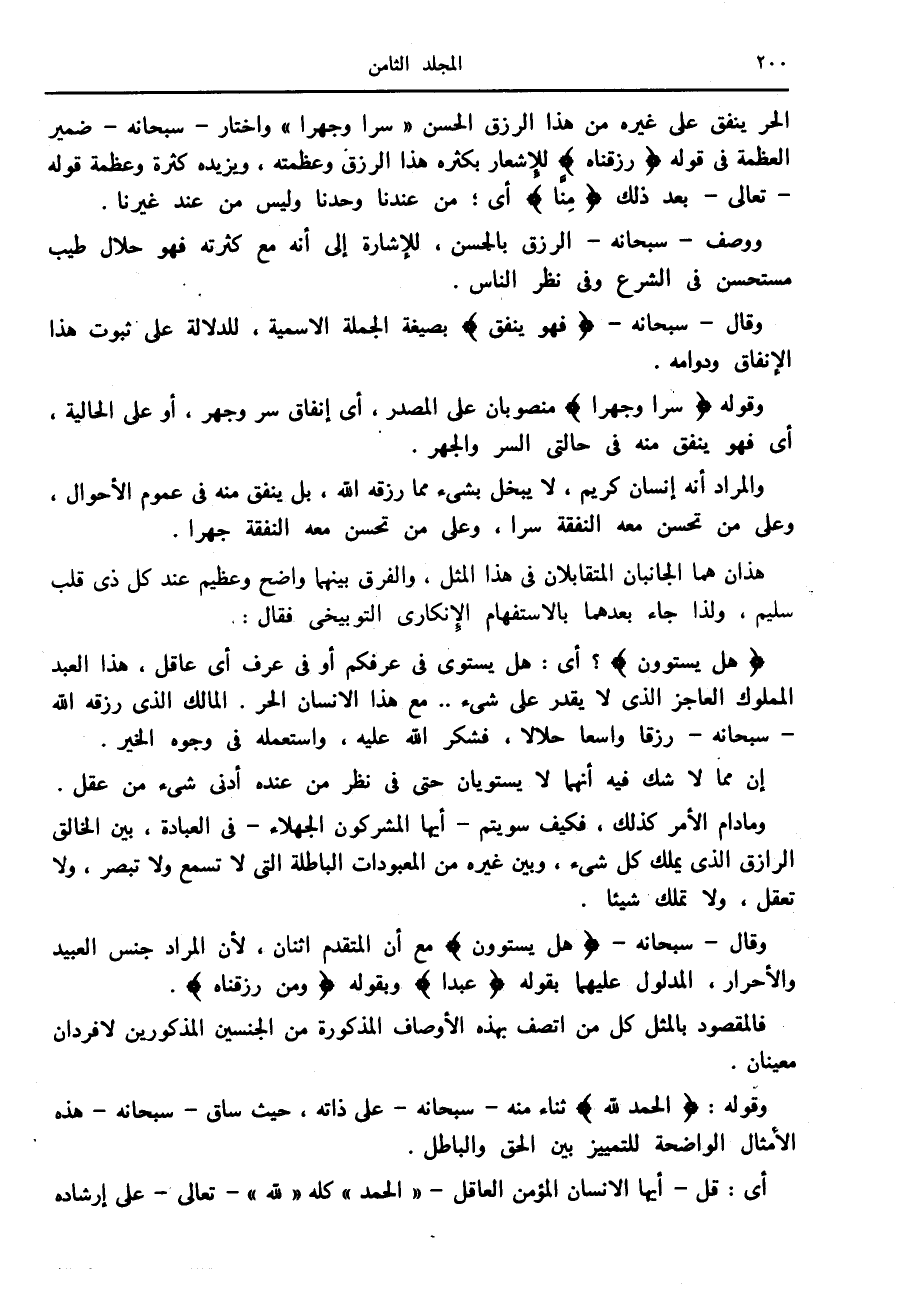 ٢٠٠ المجلد الثامن
الحر ينفق على غيره من هذا الرزق الحسن « سرا وجهرا » واختار – سبحانه – ضمير
العظمة فى قوله ﴿ رزقناه ﴾ للإشعار بكثره هذا الرزق وعظمته ، ويزيده كثرة وعظمة قوله
– تعالى – بعد ذلك ﴿ مِنَّا ﴾ أى ؛ من عندنا وحدنا وليس من عند غيرنا .
ووصف – سبحانه – الرزق بالحسن ، للإشارة إلى أنه مع كثرته فهو حلال طيب
مستحسن فى الشرع وفى نظر الناس .
وقال – سبحانه – ﴿ فهو ينفق ﴾ بصيغة الجملة الاسمية ، للدلالة على ثبوت هذا
الإنفاق ودوامه .
وقوله ﴿ سرا وجهرا ﴾ منصوبان على المصدر ، أى إنفاق سر وجهر ، أو على الحالية ،
أى فهو ينفق منه فى حالتى السر والجهر .
والمراد أنه إنسان كريم ، لا يبخل بشىء مما رزقه الله ، بل ينفق منه فى عموم الأحوال ،
وعلى من تحسن معه النفقة سرا ، وعلى من تحسن معه النفقة جهرا .
هذان هما الجانبان المتقابلان فى هذا المثل ، والفرق بينهما واضح وعظيم عند كل ذى قلب
سليم ، ولذا جاء بعدهما بالاستفهام الإنكارى التوبيخى فقال :
﴿ هل يستوون ﴾ ؟ أى : هل يستوى فى عرفكم أو فى عرف أى عاقل ، هذا العبد
المملوك العاجز الذى لا يقدر على شىء .. مع هذا الانسان الحر . المالك الذى رزقه الله
– سبحانه – رزقا واسعا حلالا ، فشكر الله عليه ، واستعمله فى وجوه الخير .
إن مما لا شك فيه أنهما لا يستويان حتى فى نظر من عنده أدنى شىء من عقل .
ومادام الأمر كذلك ، فكيف سويتم – أيها المشركون الجهلاء – فى العبادة ، بين الخالق
الرازق الذى يملك كل شىء ، وبين غيره من المعبودات الباطلة التى لا تسمع ولا تبصر ، ولا
تعقل ، ولا تملك شيئا .
وقال – سبحانه – ﴿ هل يستوون ﴾ مع أن المتقدم اثنان ، لأن المراد جنس العبيد
والأحرار ، المدلول عليهما بقوله ﴿ عبدا ﴾ وبقوله ﴿ ومن رزقناه ﴾ .
فالمقصود بالمثل كل من اتصف بهذه الأوصاف المذكورة من الجنسين المذكورين لافردان
معينان .
وقوله : ﴿ الحمد لله ﴾ ثناء منه – سبحانه – على ذاته ، حيث ساق – سبحانه – هذه
الأمثال الواضحة للتمييز بين الحق والباطل .
أى : قل – أيها الانسان المؤمن العاقل – « الحمد » كله « لله » – تعالى – على إرشاده